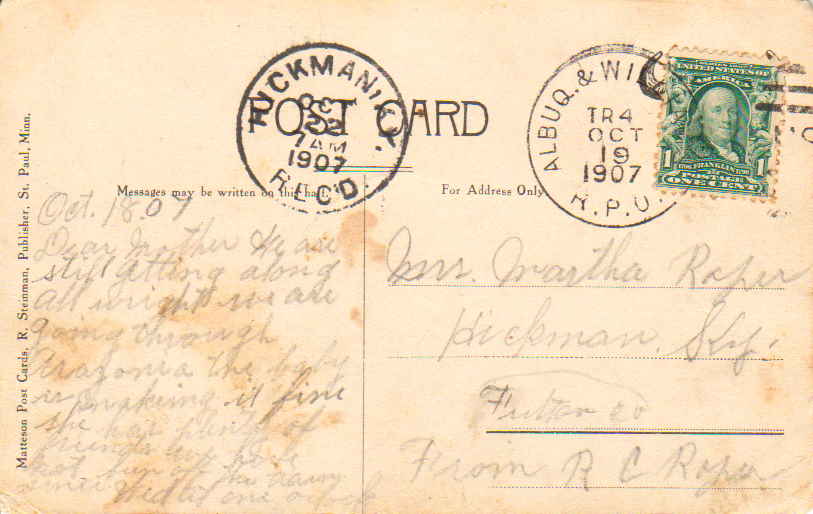 HICKMAN, KY.
OCT
22
7 AM
1907
REC'D.
POST CARD
ALBUQ. & WI
TR4
OCT
19
1907
R.P.O.
UNITED STATES OF
AMERICA
1706 FRANKLIN 1790
1 1
POSTAGE
ONE CENT
Messages may be written on this half.
For Address Only
Matteson Post Cards, R. Steinman, Publisher, St. Paul, Minn.
Oct. 18 07
Dear Mother We are
still getting along
all wright we are
going through
Arazonia the baby
is making it fine
she has plenty of
friends
last
since Wed at one
Mrs. Martha Roper
Hickman, Ky.
Fulton co
From R C Roper